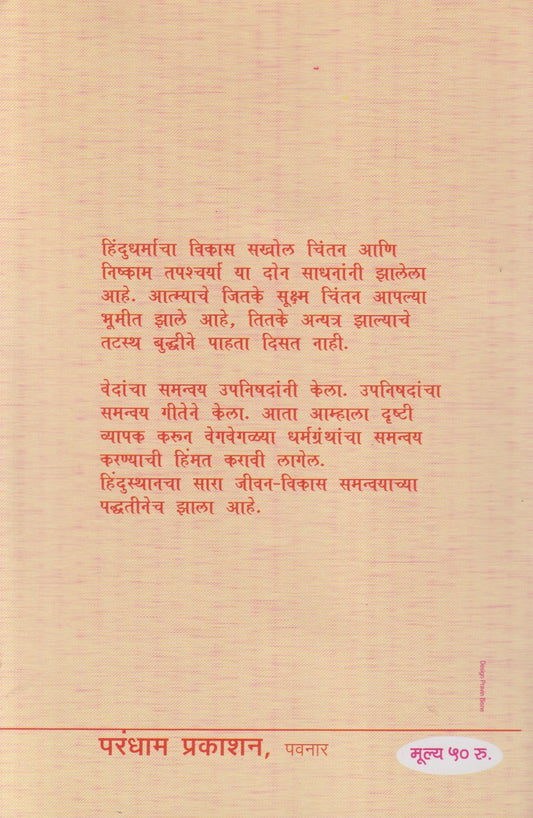 हिंदुधर्माचा विकास सखोल चिंतन आणि
निष्काम तपश्चर्या या दोन साधनांनी झालेला
आहे. आत्म्याचे जितके सूक्ष्म चिंतन आपल्या
भूमीत झाले आहे, तितके अन्यत्र झाल्याचे
तटस्थ बुद्धीने पाहता दिसत नाही.
वेदांचा समन्वय उपनिषदांनी केला. उपनिषदांचा
समन्वय गीतेने केला. आता आम्हाला दृष्टी
व्यापक करून वेगवेगळ्या धर्मग्रंथांचा समन्वय
करण्याची हिंमत करावी लागेल.
हिंदुस्थानचा सारा जीवन-विकास समन्वयाच्या
पद्धतीनेच झाला आहे.
Design Pravin
परंधाम प्रकाशन, पवनार
मूल्य ५० रु.